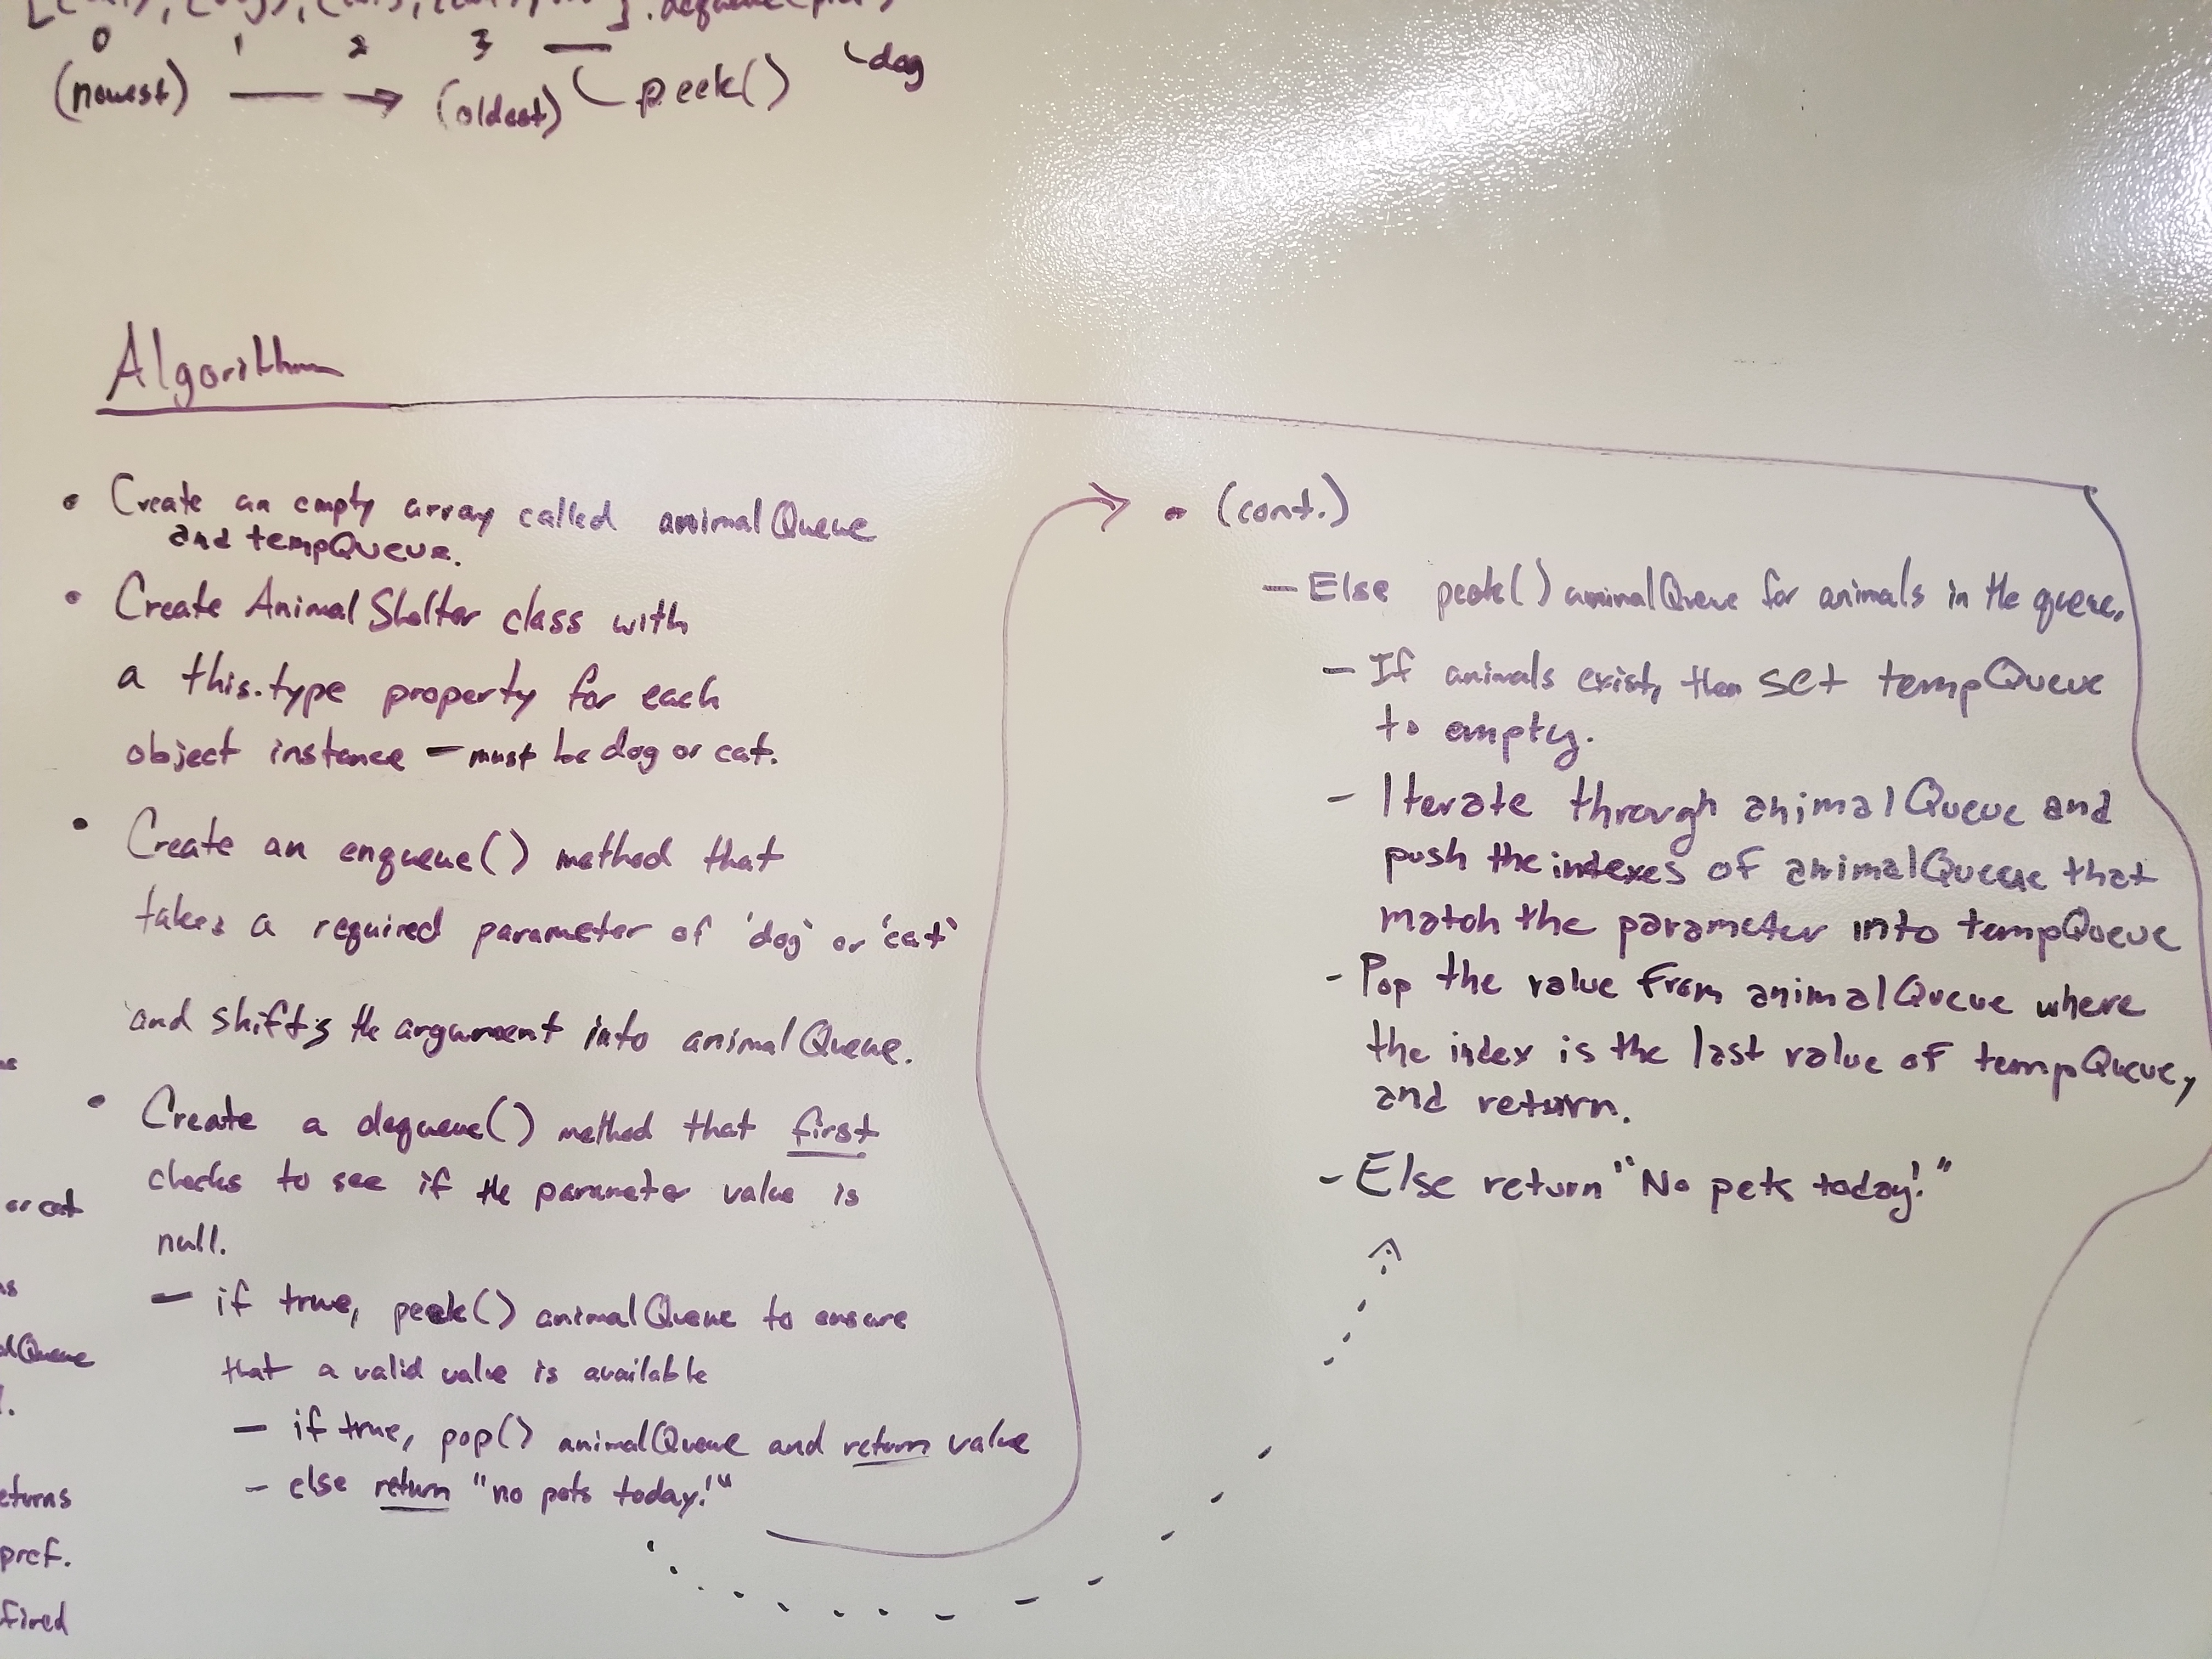 0 1 2 3
(newest) → (oldest) peek() dog
Algorithm
• Create an empty array called animalQueue
and tempQueue.
• Create AnimalShelter class with
a this.type property for each
object instance – must be dog or cat.
• Create an enqueue() method that
takes a required parameter of 'dog' or 'cat'
and shifts the argument into animalQueue.
• Create a dequeue() method that first
checks to see if the parameter value is
null.
– if true, peek() animalQueue to ensure
that a valid value is available
– if true, pop() animalQueue and return value
– else return "no pets today!"
• (cont.)
– Else peek() animalQueue for animals in the queue.
– If animals exist, then set tempQueue
to empty.
– Iterate through animalQueue and
push the indexes of animalQueue that
match the parameter into tempQueue
– Pop the value from animalQueue where
the index is the last value of tempQueue,
and return.
– Else return "No pets today!"
or cat
Queue
eturns
pref.
fired